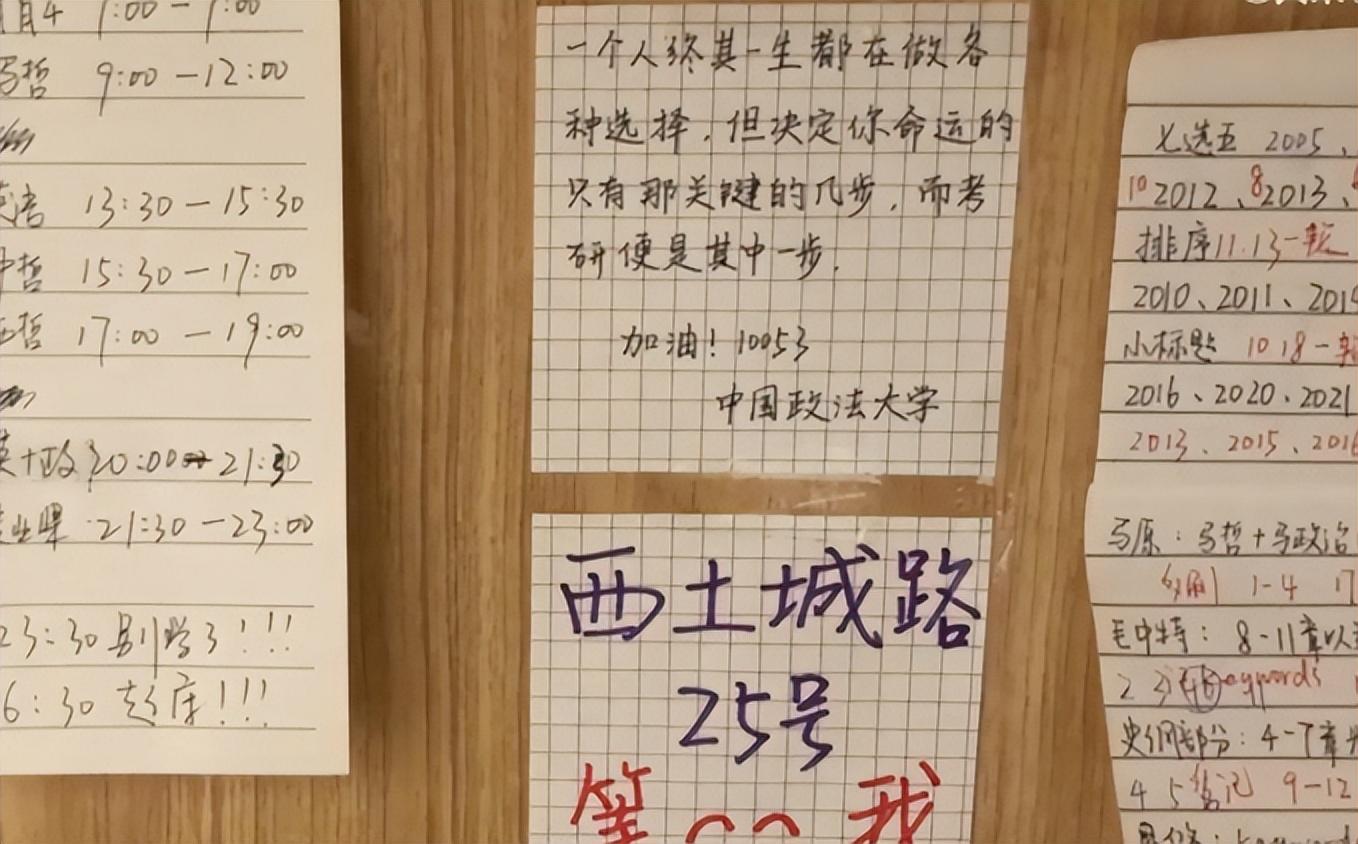 9:00 — 12:00
13:30 — 15:30
15:30 — 17:00
17:00 — 19:00
20:00 21:30
21:30 — 23:00
23:30 别学了!!!
6:30 起床!!!
一个人终其一生都在做各
种选择,但决定你命运的
只有那关键的几步,而考
研便是其中一步.
加油! 10053
中国政法大学
西土城路
25号
等 我
七选五 2005、
10 2012、8 2013、
排序 11.13一般
2010、2011、2014
小标题 10 18一
2016、2020、2021
2013、2015、2016
马原:马哲+马政治
1-4
毛中特: 8-11章以
2 3 keywords
史纲部分: 4-7章
4 5 笔记 9-12